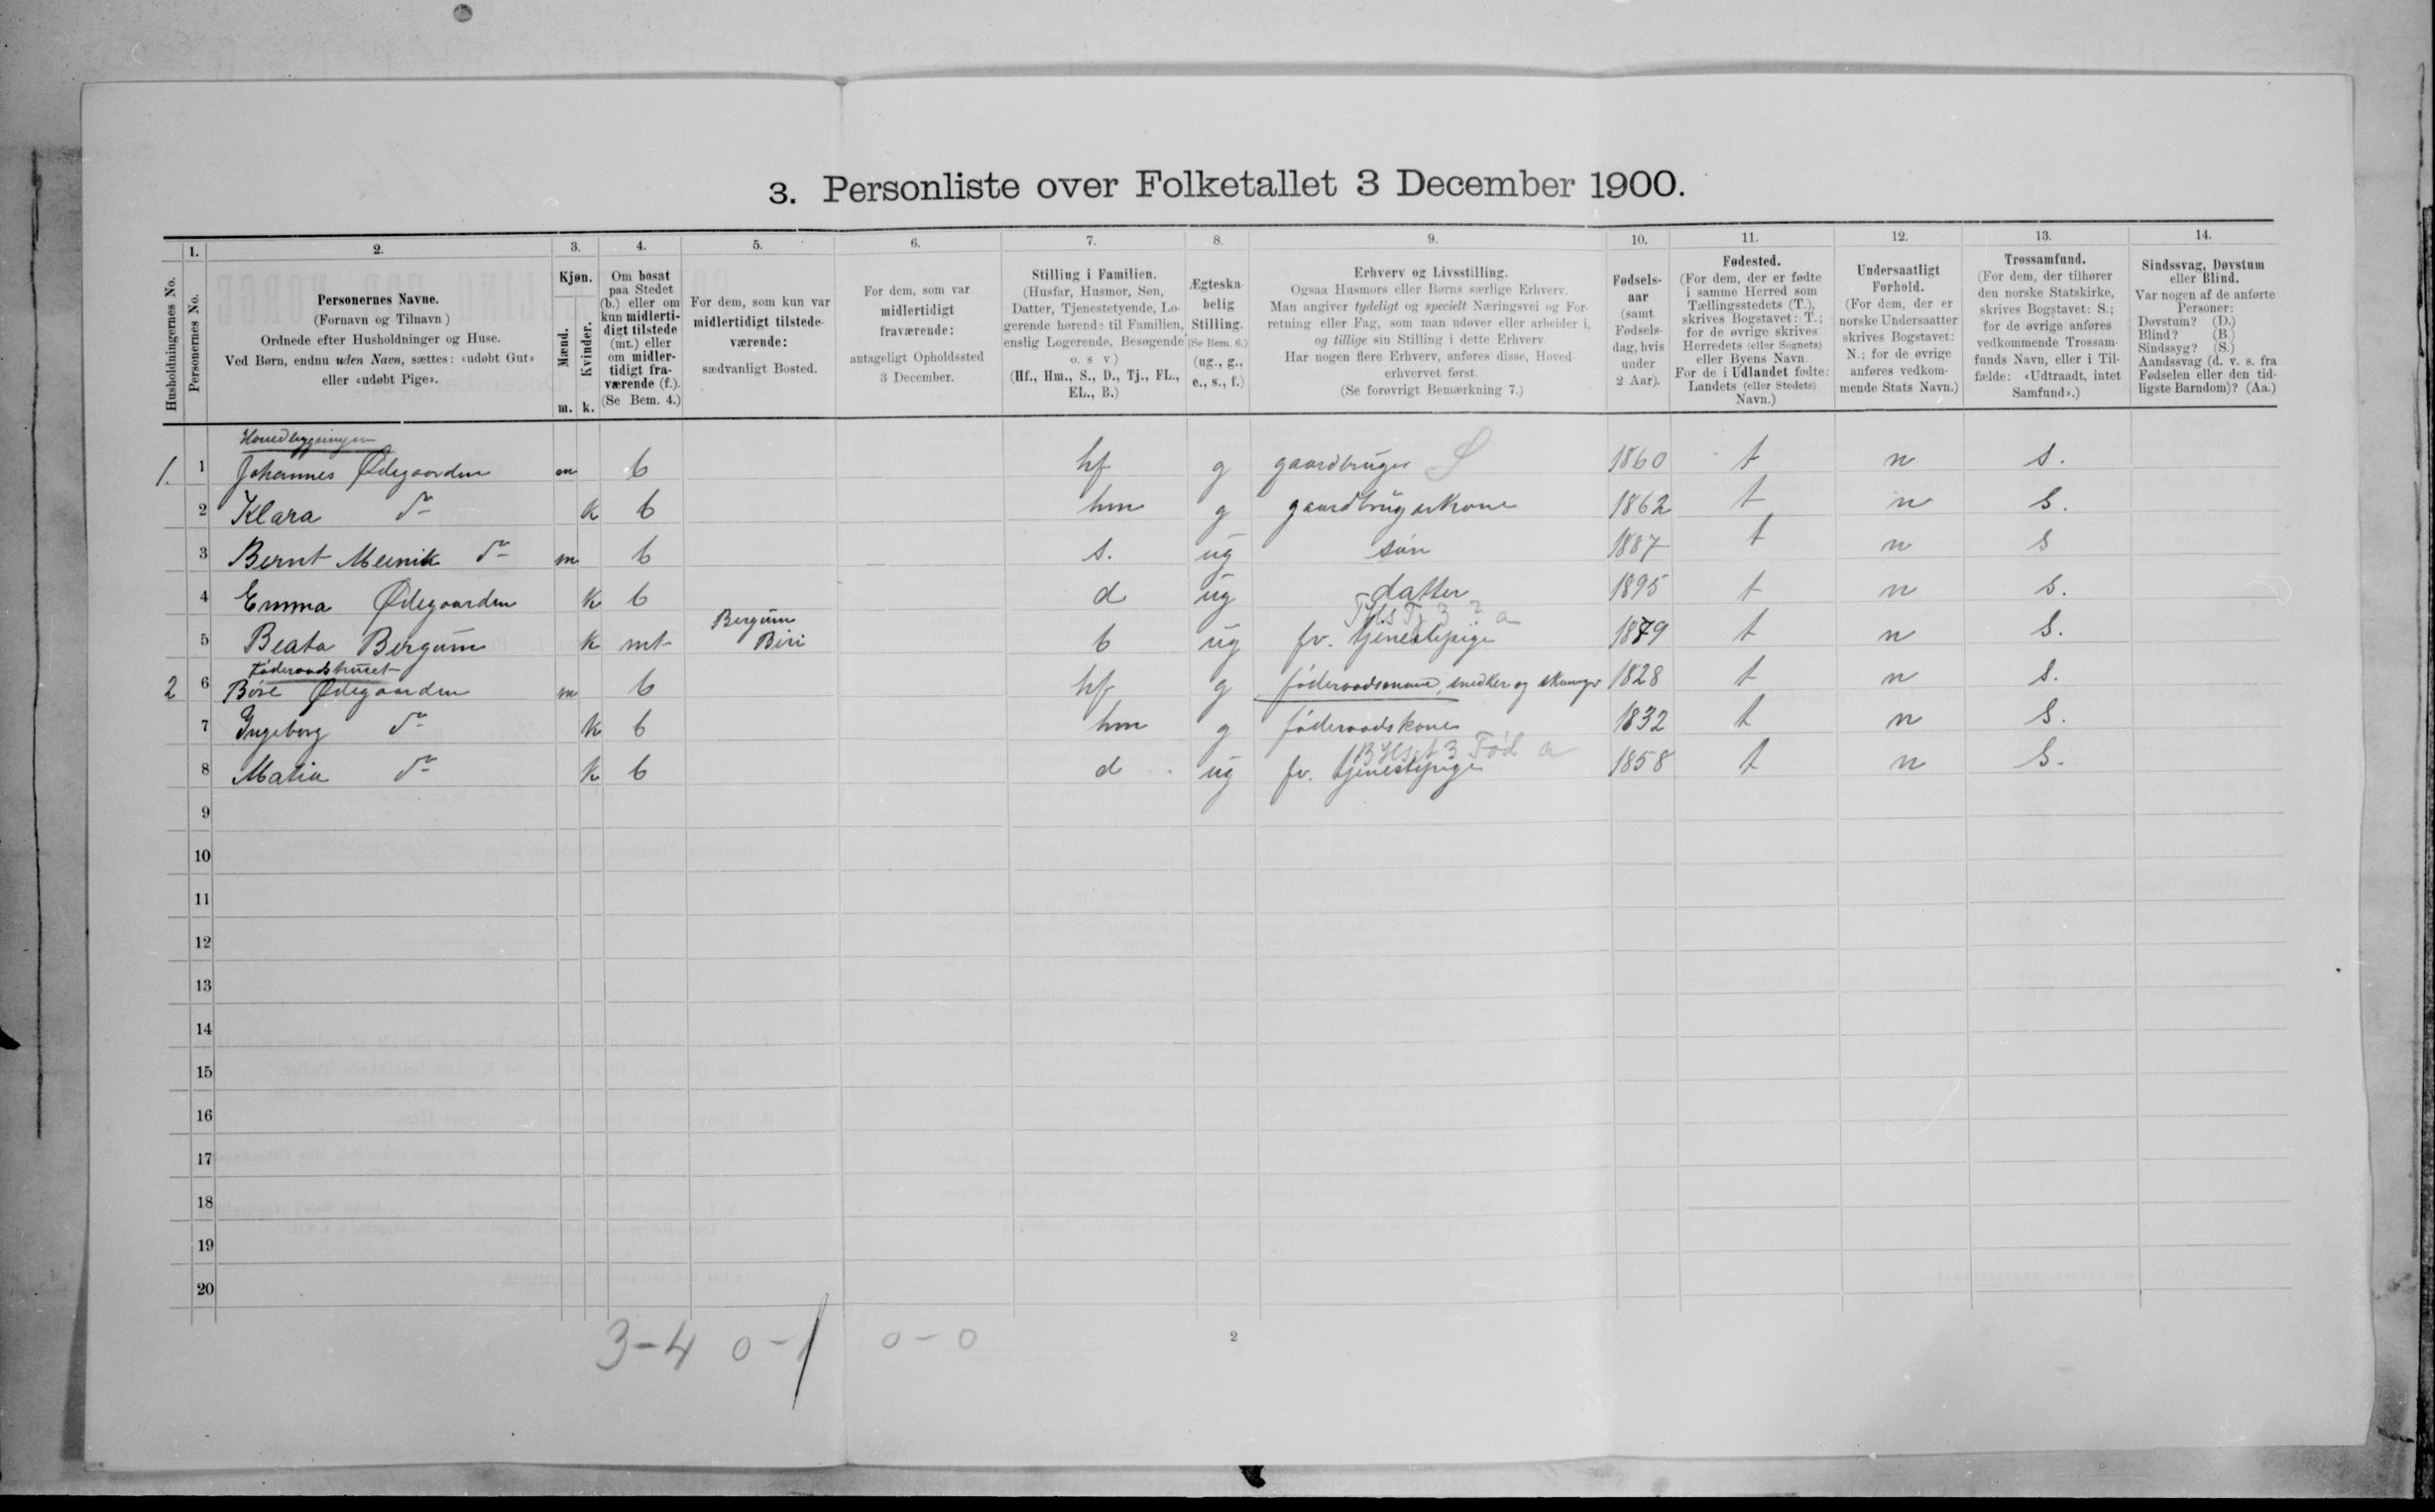 3. Personliste over Folketallet 3 December 1900.
Husholdningernes No.
1.
Personernes No.
2.
Personernes Navne.
(Fornavn og Tilnavn)
Ordnede efter Husholdninger og Huse.
Ved Børn, endnu uden Navn, sættes: «udøbt Gut»
eller «udøbt Pige».
3.
Kjøn.
Mænd.
Kvinder.
m. k.
4.
Om bosat
paa Stedet
(b.) eller om
kun midlerti-
digt tilstede
(mt.) eller
om midler-
tidigt fra-
værende (f.).
(Se Bem. 4.)
5.
For dem, som kun var
midlertidigt tilstede-
værende:
sædvanligt Bosted.
6.
For dem, som var
midlertidigt
fraværende:
antageligt Opholdssted
3 December.
7.
Stilling i Familien.
(Husfar, Husmor, Søn,
Datter, Tjenestetyende, Lo-
gerende hørende til Familien,
enslig Logerende, Besøgende
o. s v)
(Hf., Hm., S., D., Tj., FL.,
EL., B.)
8.
Ægteska-
belig
Stilling.
(Se Bem. 6.)
(ug., g.,
e., s., f.)
9.
Erhverv og Livsstilling.
Ogsaa Husmors eller Børns særlige Erhverv.
Man angiver tydeligt og specielt Næringsvei og For-
retning eller Fag, som man udøver eller arbeider i,
og tillige sin Stilling i dette Erhverv
Har nogen flere Erhverv, anføres disse, Hoved-
erhvervet først.
(Se forøvrigt Bemærkning 7.)
10.
Fødsels-
aar
(samt
Fødsels-
dag, hvis
under
2 Aar).
11.
Fødested.
(For dem, der er fødte
i samme Herred som
Tællingsstedets (T.),
skrives Bogstavet: T.;
for de øvrige skrives
Herredets (eller Sognets)
eller Byens Navn.
For de i Udlandet fødte:
Landets (eller Stedets)
Navn.)
12.
Undersaatligt
Forhold.
(For dem, der er
norske Undersaatter
skrives Bogstavet:
N.; for de øvrige
anføres vedkom-
mende Stats Navn.)
13.
Trossamfund.
(For dem, der tilhører
den norske Statskirke,
skrives Bogstavet: S.;
for de øvrige anføres
vedkommende Trossam-
funds Navn, eller i Til-
fælde: «Udtraadt, intet
Samfund».)
14.
Sindssvag, Døvstum
eller Blind.
Var nogen af de anførte
Personer:
Døvstum? (D.)
Blind? (B.)
Sindssyg? (S.)
Aandssvag (d. v. s. fra
Fødselen eller den tid-
ligste Barndom)? (Aa.)
Hovedbygningen
1. 1 Johannes Ødegaarden m b hf g gaardbruger S 1860 t n s.
2 Klara do k b hm g gaardbrugerkone 1862 t n s.
3 Bernt Meinik do m b s. ug søn 1887 t n s
4 Emma Ødegaarden k b d ug datter 1895 t n s.
5 Beata Bergum k mt Bergum Biri b ug fv. tjenestepige 1879 t n s.
Føderaadshuset
2 6 Børe Ødegaarden m b hf g føderaadsmand, snedker og 1828 t n s.
7 Ingeborg do k b hm g føderaadskone 1832 t n s.
Fød a
8 Matia do k b d ug fv. tjenestepige 1858 t n s.
9
10
11
12
13
14
15
16
17
18
19
20
3-4 0-1 0-0
2